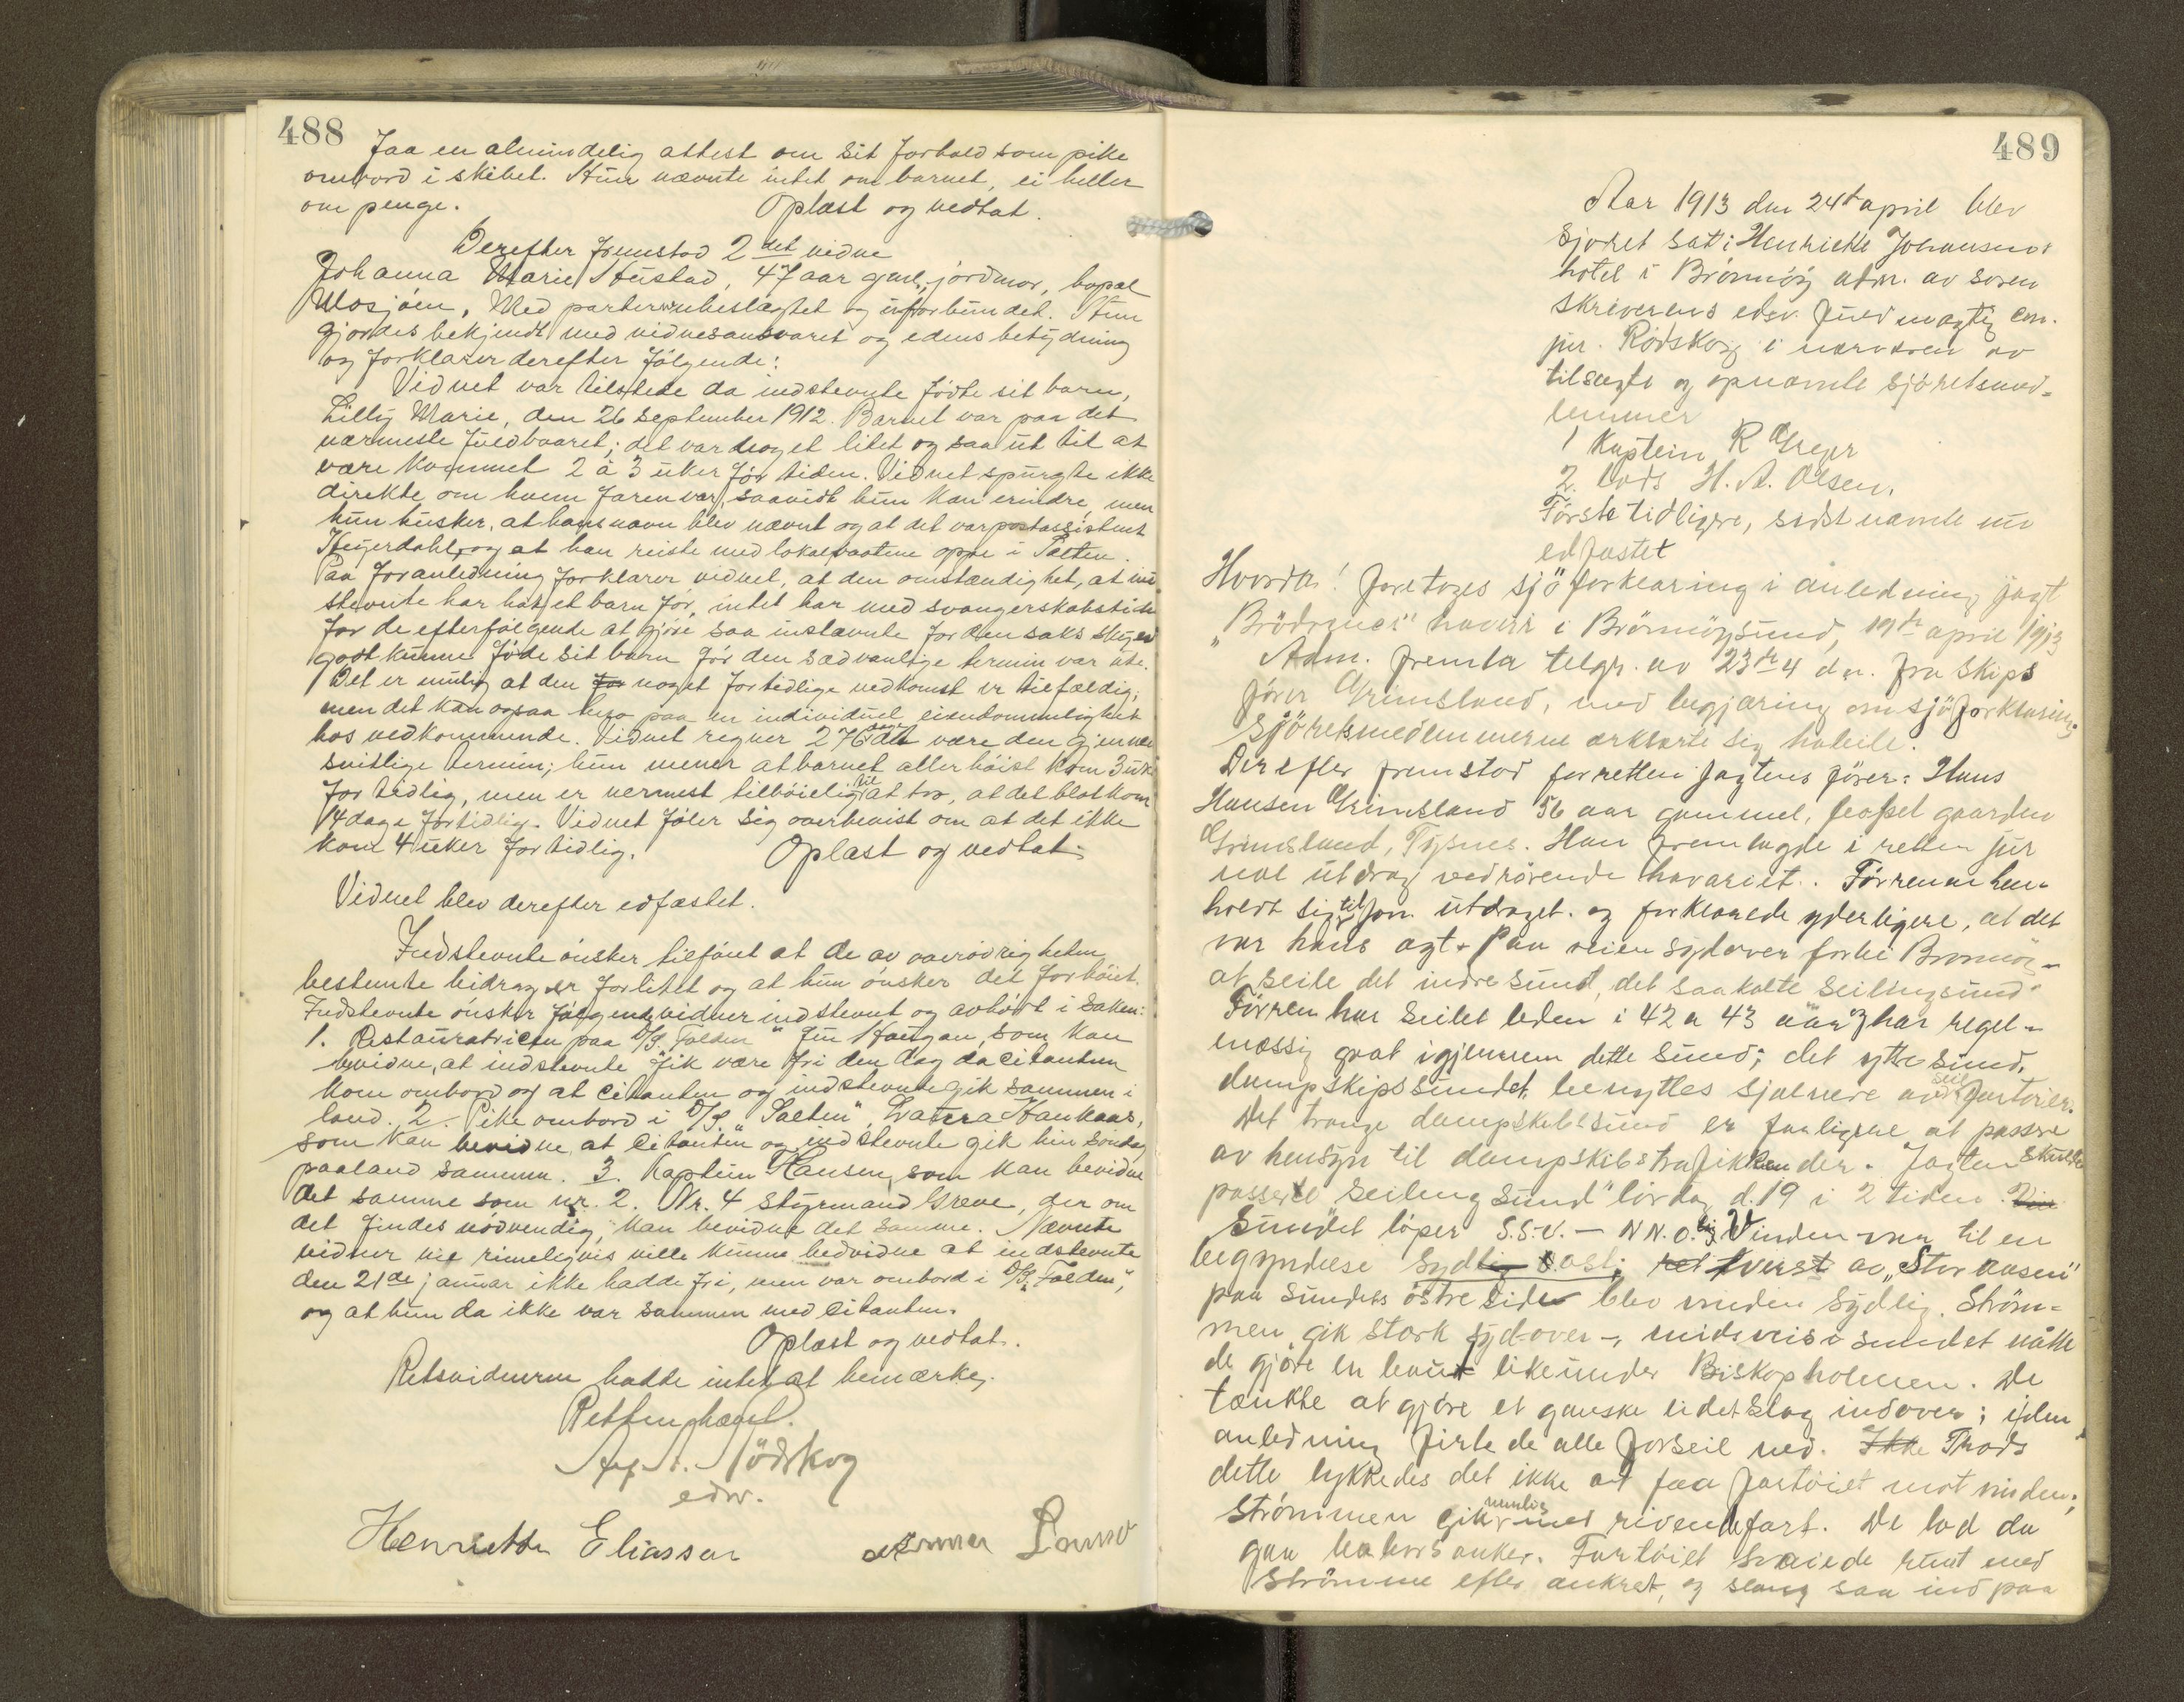 488
faa en almindelig attest om sit forhold som pike
ombord i skibet. Hun nævnte intet om barnet, ei heller
om penge. Oplæst og vedtat.
Derefter fremstod 2det vidne
Johanna Marie Hustad, 47 aar gml, jordmor, bopæl
Mosjøen. Med parterne ubeslægtet og uforbundet. Hun
gjordes bekjendt med vidnesansvaret og edens betydning
og forklarer derefter følgende:
Vidnet var tilstede da indstevnte fødte sit barn,
Lilly Marie, den 26 september 1912. Barnet var paa det
nærmeste fuldbaaret; det var dog et litet og saa ut til at
være kommet 2 à 3 uker før tiden. Vidnet spurgte ikke
direkte om hvem faren var, saavidt hun kan erindre, men
hun husker, at hans navn blev nævnt og at det var postassistent
Heyerdahl, og at han reiste med lokalbaatene oppe i Salten.
Paa foranledning forklarer vidnet, at den omstændighet, at ind
stevnte har hat et barn før, intet har med svangerskabstiden
for de efterfølgende at gjøre saa instævnte for den saks skyld
godt kunne føde sit barn før den sædvanlige termin var ute.
Det er mulig at den for noget fortidlige nedkomst er tilfældig;
men det kan ogsaa bero paa en individuel eiendommelighet
hos vedkommende. Vidnet regner 276 dage at være den gjennem
snitlige termin; hun mener at barnet aller høist kom 3 uker
for tidlig, men er nermest tilbøielig til at tro, at det blot kom
14 dage fortidlig. Vidnet føler sig overbevist om at det ikke
kom 4 uker for tidlig. Oplæst og vedtat.
Vidnet blev derefter edfæstet.
Indstevnte ønsker tilført at de av øvrigheten
bestemte bidrag er for litet og at hun ønsker det forhøiet.
Indstevnte ønsker følgende vidner indstevnt og avhørt i saken:
1. Restauratricen paa D/S. "Falden" frk Haugan, som kan
bevidne, at indstevnte fik være fri den dag da citanten
kom ombord og at citanten og indstevnte gik sammen i
land. 2. Pike ombord i D/S. "Salten", Laura Haukaas,
som kan bevidne at citanten og indstevnte gik hin søndag
paaland sammen. 3. Kaptein Hansen, som kan bevidne
det samme som nr. 2. Nr. 4 Styrmand Greve, der om
det findes nødvendig, kan bevidne det samme. Nævnte
vidner vil rimeligvis ville kunne bedvidne at indstevnte
den 21de januar ikke hadde fri, men var ombord i D/S. "Falden",
og at hun da ikke var sammen med citanten.
Oplæst og vedtat.
Retsvidnerne hadde intet at bemærke.
Retten hævet.
Rödskog
edsv.
Henriette Eliassen
489
Aar 1913 den 24de april blev
sjøret sat i Henriette Johansens
hotel i Brønnøy adm. av soren
skriverens edsv. fuldmægtig cand.
jur. Rødskog i nærværen av
tilsagte og opnævnte sjøretsmed-
lemmer
1 Kaptein R Greger
2. Lods H. A. Olsen.
Første tidligere, sidst nævnte nu
edfæstet
Hvorda! foretoges sjøforklaring i anledning jagt
"Brødrenes" havari i Brønnøysund, 19de april 1913
Adm. fremla telgr. av 23de 4 d.a. fra skips
fører Grimsland, med begjæring om sjøforklaring
Sjøretsmedlemmerne erklærte sig habile.
Derefter fremstod for retten jagtens fører: Hans
Hansen Grimsland 56 aar gammel, bopæl gaarden
Grimsland, Tysnes. Han fremlagde i retten jur
nal utdrag vedrørende havariet. Føreren hen-
holdt sig til jon. utdraget. og forklarede yderligere, at det
var hans agt paa veien sydover forbi Brønnøy-
at seile det indre sund, det saakalte seilingsund.
Føreren har seilet leden i 42 a 43 aar og har regel-
mæssig gaat igjennem dette sund; det ytre sund,
dampskipssundet, benyttes sjelnere av seilfartøier.
Det trange dampskibssund er farligere at passere
av hensyn til dampskibstrafikken der. Jagten skulde
passerte "seilingsund" lørdag d. 19 i 2 tiden. Vin
Sundet løper S.S.V. - N N.O. lig Vinden var til en
begyndelse sydlig ost; ret tverst av "Storaasen"
paa sundets østre side blev vinden sydlig. Strøm-
men gik stærk sydover -, midtveis i sundet måtte
de gjøre en baut like under Biskopholmen. De
tænkte at gjøre et ganske lidet slag indover; i den
anledning firte de alle forseil ned. Ikke Trods
dette lykkedes det ikke at faa fartøiet mot vinden;
strømmen gik nemlig med rivende fart. De lod da
gaa babors anker. Fartøiet svaiede rundt med
strømme efter ankret, og slang saa ind paa